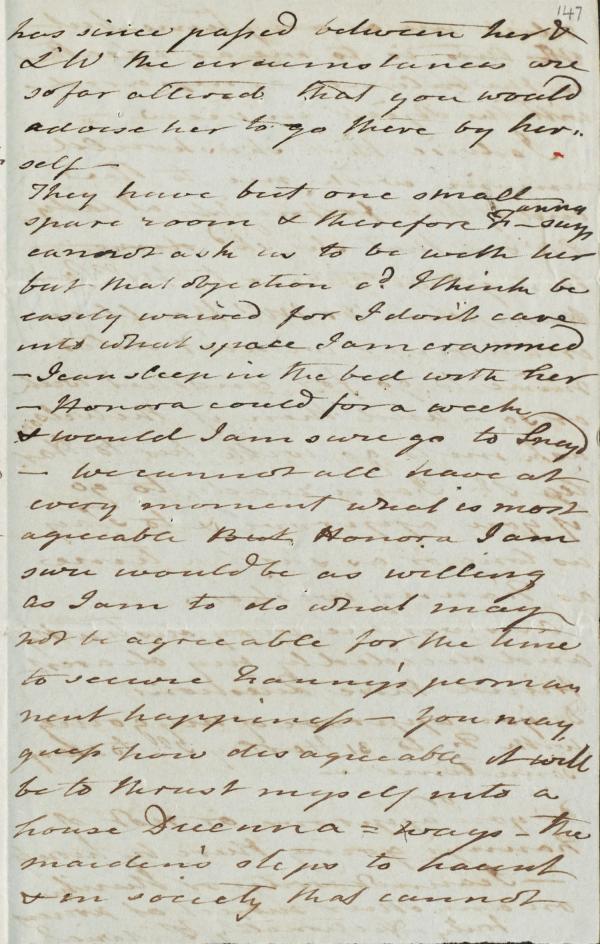 147
has since passed between her &
L W the circumstances are
so far altered that you would
advise her to go there by her=
self—
They have but one small
spare room & therefore Fanny says
cannot ask us to be with her
but that objection cd I think be
easily waived for I don't care
into what space I am crammed
- I can sleep in the bed with her
- Honora could for a week
& would I am sure go to Sneyd
- We cannot all have at
every moment what is most
agreeable But Honora I am
sure would be as willing
as I am to do what may
not be agreeable for the time
to secure Fanny's perman
nent happiness - You may
guess how disagreeable it will
be to thrust myself into a
house Duenna = ways - the
maiden's steps to haunt
& in society that cannot